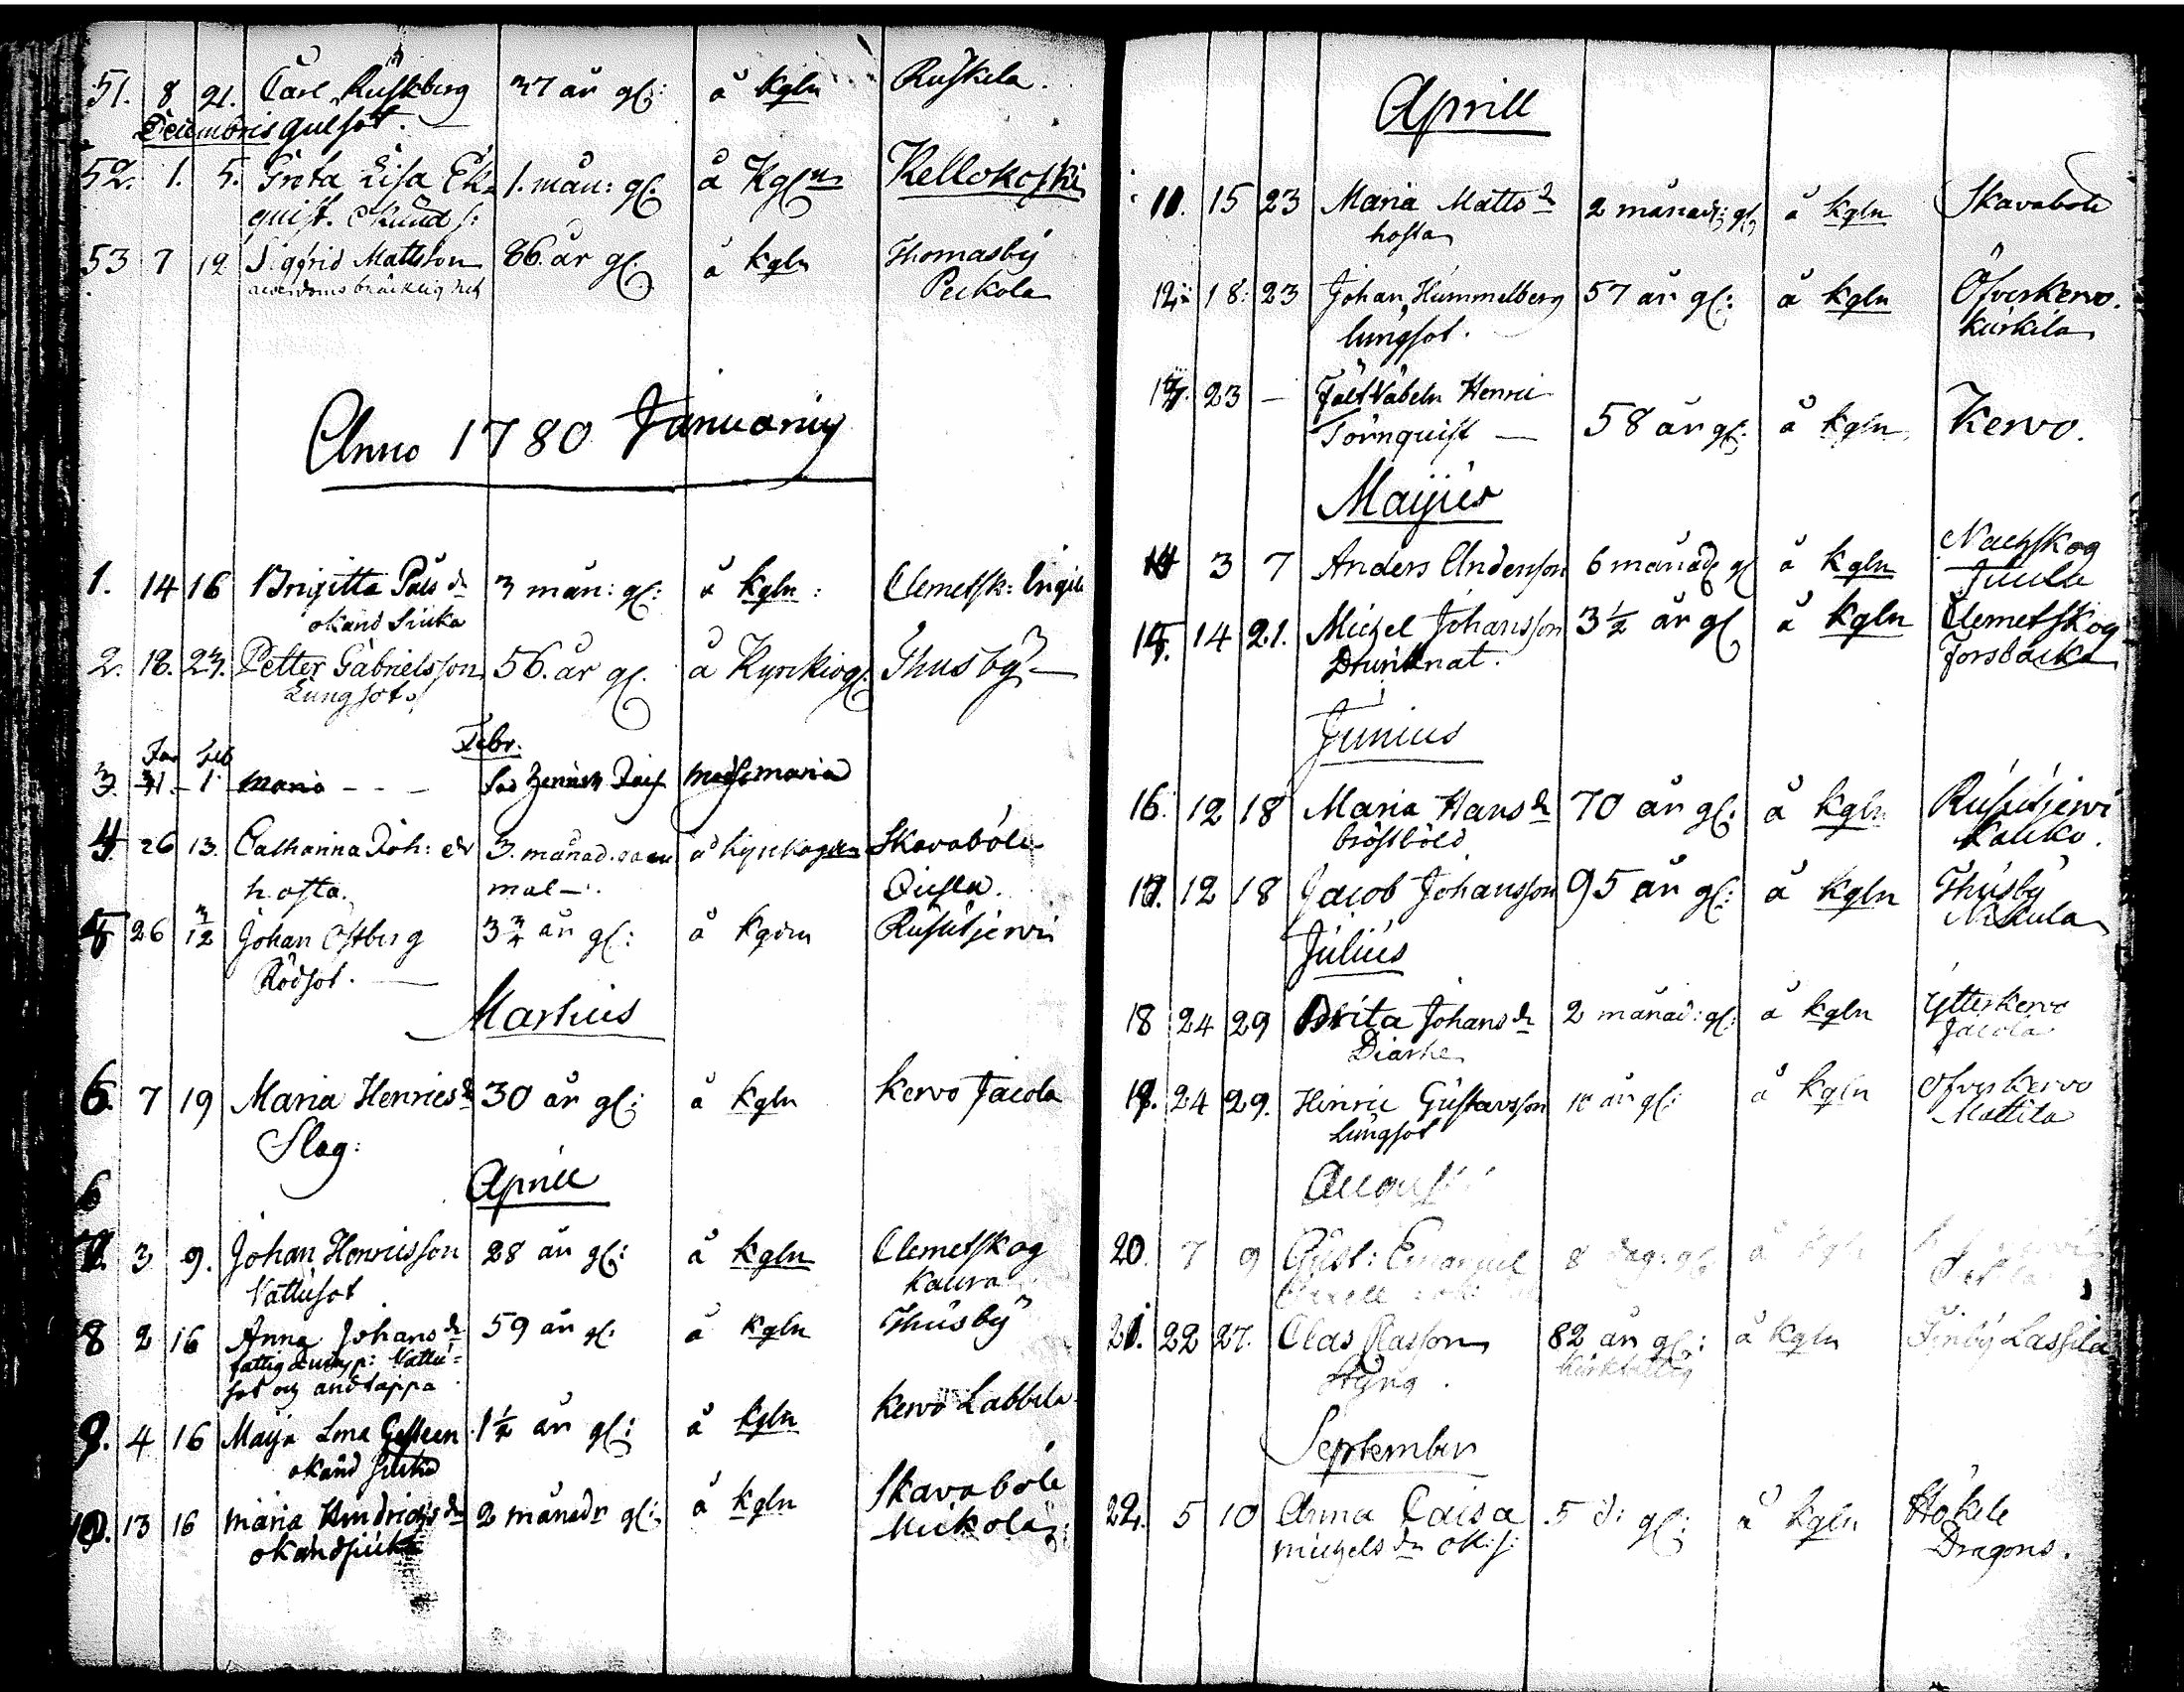 51. 8 21. Carl Ruskberg 37 år gl: å kgln Ruskila.
Decembris gulsot.
52. 1. 5. Greta Lisa Ek= 1. mån: gl. å Kgln Kellokoski
quist. okund s:
53 7 12 Sigfrid Mattsson 86. år gl. å kgln Thomasby
Peckola
Anno 1780 Januarius
1. 14 16 Brigitta Påls dr 3 mån: gl: å kgln: Clemetsk:
okänd siuka
2. 18. 23. Petter Gabrielsson 56. år gl. å Kyrckiog. Thusby
Lungsot.
Febr.
Jan Feb
3. 31 - 1. Maria - - -
4. 26 13. Catharina Joh: dr 3. månad. gammal. å kyrckogån Skavaböle
hosta.
5 26 3/12 Johan Östberg 3 3/4 år gl: å kgörn Rusutjervi
Rödsot.
Martius
6. 7 19 Maria Henrics dr 30 år gl: å kgln Kervo Jacola
Slag:
Aprill
6
7. 3 9. Johan Henricsson 28 år gl: å kgln Clemetskog
Vattusot Kaura
8 2 16 Anna Johans dr 59 år gl: å kgln Thusby
fattig Vattu=
sot och andtäppa
9. 4 16 Maija Lena Gesteen 1 1/2 år gl: å kgln Kervo Labbila
okänd siuka
10. 13 16 Maria Hindrichs dr 2 månadr gl: å kgln Skavaböle
okänd siuka Mickola
Aprill
11. 15 23 Maria Matts dr 2 månad: gl. å kgln Skavaböle
hosta
12. 18. 23 Johan Hummelberg 57 år gl: å kgln Öfverkervo.
lungsot. Kürkila
13. 23 - Fältväbeln Henric
Törnquist 58 år gl: å kgln Kervo.
Maijus
14 3 7 Anders Andersson 6 månad. gl å kgln Nackskog
Juula
15. 14 21. Michel Johansson 3 1/2 år gl å kgln Clemetskog
Drunknat. Forsbacka
Junius
16. 12 18 Maria Hans dr 70 år gl: å kgln Rusutjervi
bröstböld Kauko.
17. 12 18 Jacob Johansson 95 år gl: å kgln Thusby
Niskula
Julius
18 24 29 Brita Johans dr 2 månad: gl: å kgln Ytterkervo
Diarhe Jacola
19. 24 29. Hinric Gustavsson år gl: å kgln Öfverkervo
lungsot Mattila
Augusti
20. 7 9 Gust: Emanuel 8 dag: gl: å kgln
21. 22 27. Clas Classon 82 år gl: å kgln Finby Lassila
Styng.
September
22. 5 10 Anna Caisa 5 d: gl: å kgln Hökele
Michels dr ok: s: Dragons.